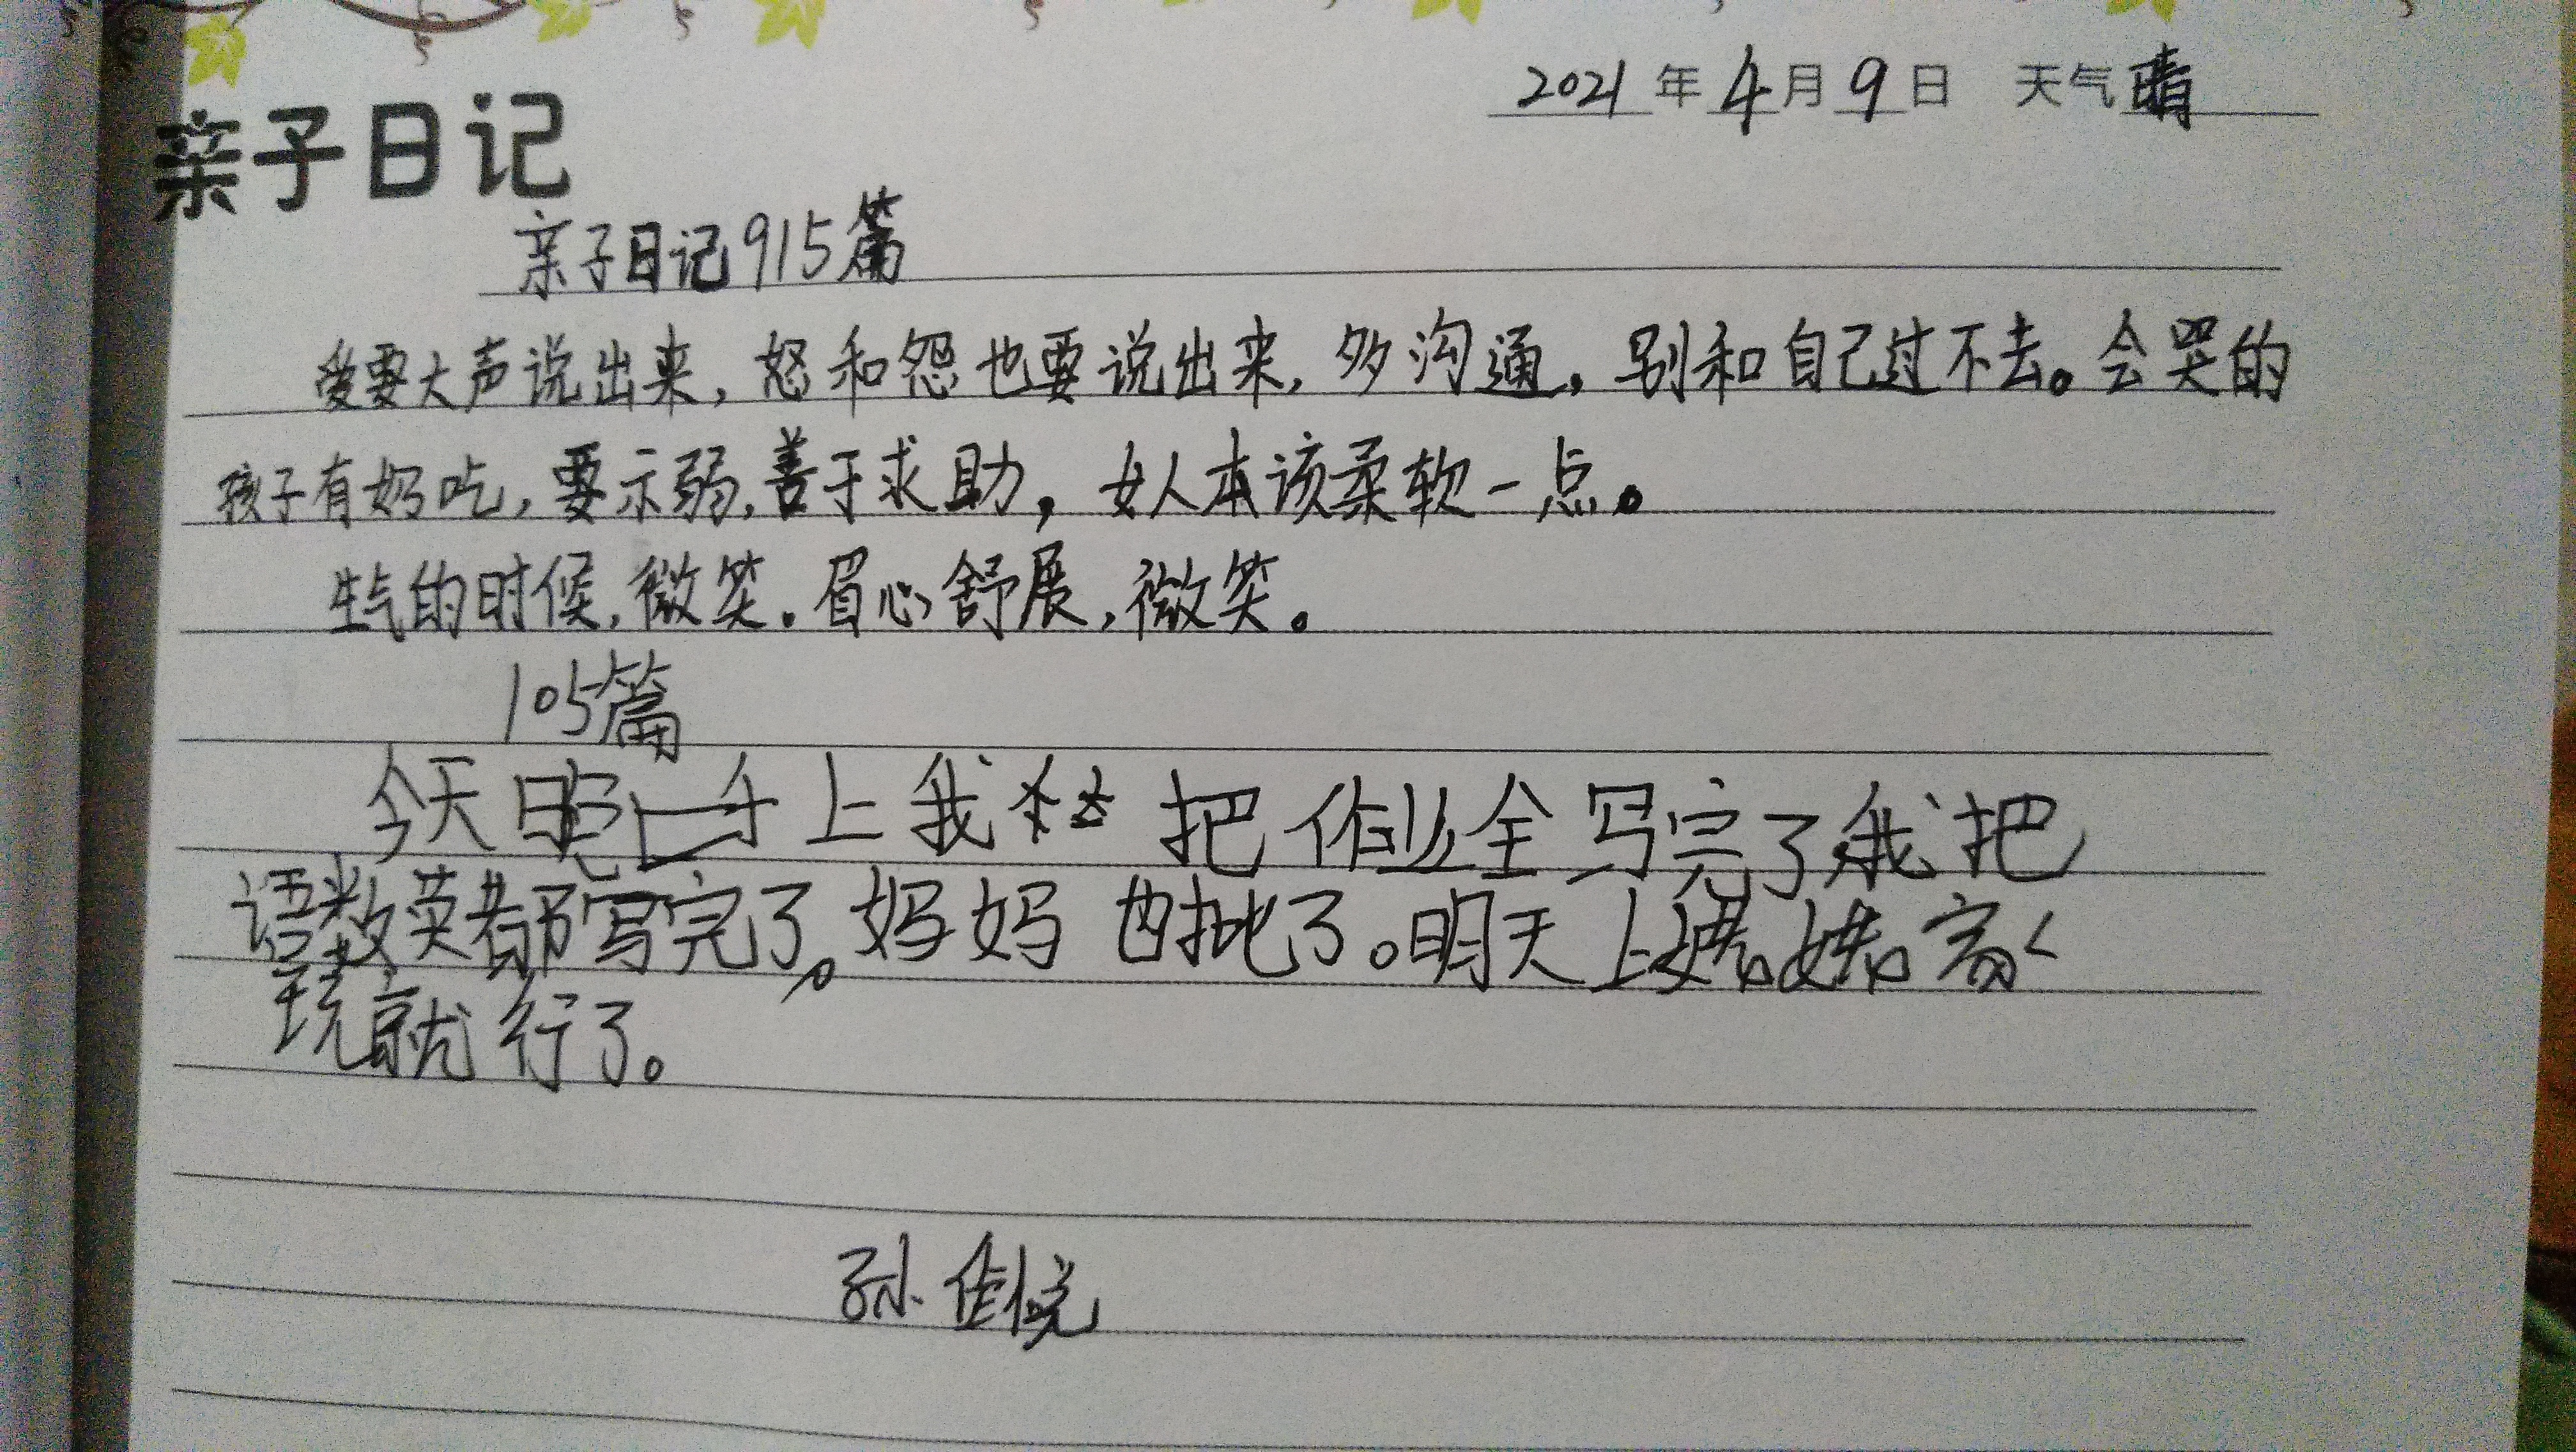 2021年4月9日 天气晴
亲子日记
亲子日记915篇
爱要大声说出来,怒和怨也要说出来,多沟通,别和自己过不去。会哭的
孩子有奶吃,要示弱,善于求助,女人本该柔软一点。
生气的时候,微笑。眉心舒展,微笑。
105篇
今天晚上我把作业全写完了我把
语数英都写完了。妈妈也批了。明天上
就行了。
孙佳悦